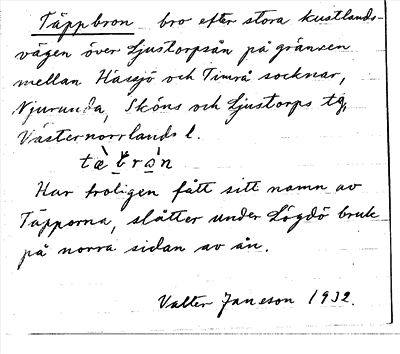 Täppbron bro efter stora kustlands-
vägen över Ljustorpsån på gränsen
mellan Hässjö och Timrå socknar,
Njurunda, Sköns och Ljustorps tg,
Västernorrlands l.
Har troligen fått sitt namn av
Täpporna, slåtter under Lögdö bruk
på norra sidan av ån.
Valter Janeson 1932.